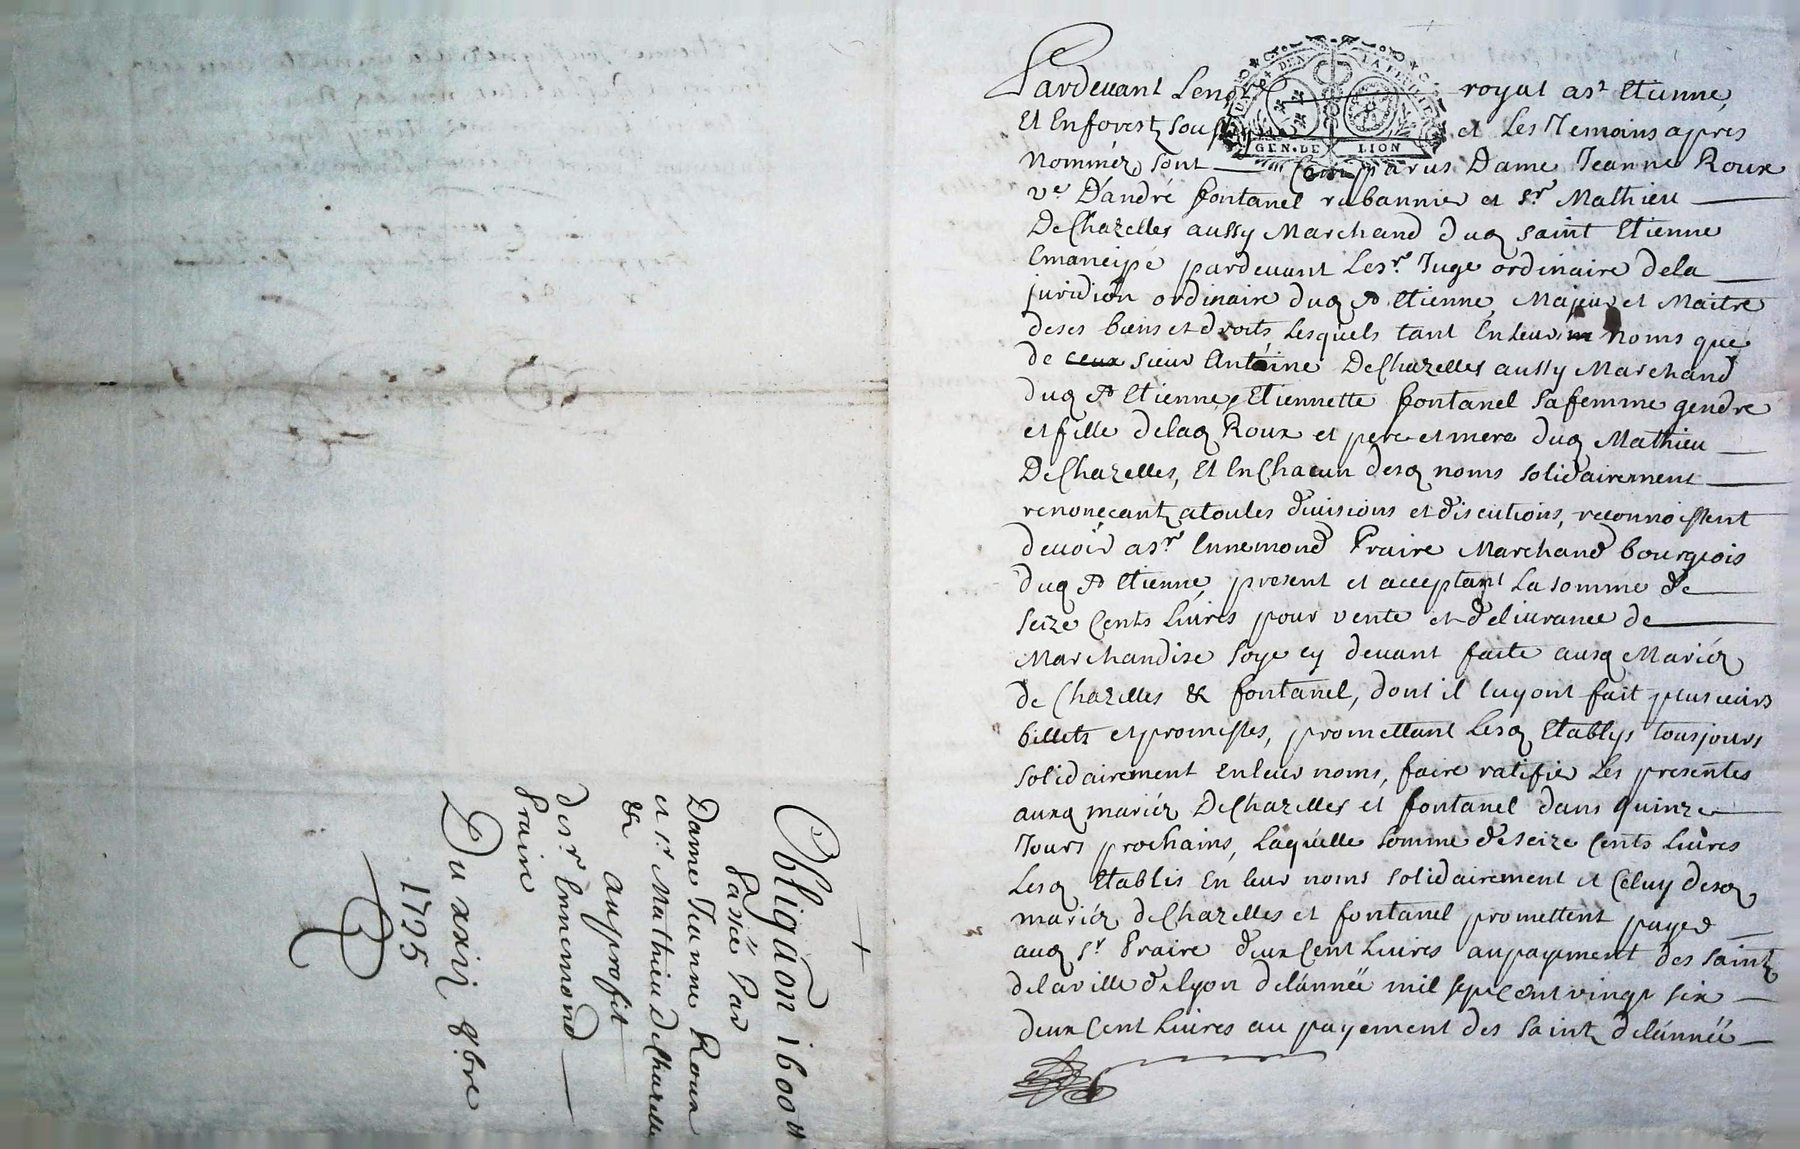 Pardevant Lenore royal a st Etienne,
Et Enforest, souss et Les Temoins apres
Nommez, sont comparus Dame Jeanne Roux
ve D'andré fontanel rubannier et sr. Mathieu
DeChazelles aussy Marchand duq saint Etienne
Emancipé pardevant Lesr. Juge ordinaire dela
juridion ordinaire duq st Etienne, Majeur et Maitre
deses biens et droits, Lesquels tant Enleur noms que
de ceux sieur Antoine DeChazelles aussy Marchand
duq st Etienne, Etiennette fontanel safemme gendre
et fille delaq Roux et pere et mere duq Mathieu
DeChazelles, Et EnChacun desq noms solidairement
renoneçant atoutes divisions et discutions, reconnoissent
devoir asr. Ennemond Praire Marchand bourgeois
duq st Etienne, present et acceptant La somme de
seize Cents Livres pour vente et delivrance de
Marchandise soye cy devant faite auxq Mariéz
de Chazelles & fontanel, dont il luyont fait plusieurs
billets et promesses, promettant Lesq Etablys tousjours
solidairement enleur noms, faire ratifier Les presentes
auxq mariéz DeChazelles et fontanel dans quinze
Jours prochains, Laquelle somme deseize Cents Livres
Lesq Etablis En leur noms solidairement et Celuy desq
mariéz deChazelles et fontanel promettent payer
auq sr. Praire deux Cent Livres aupayement des saint
delaville delyon delannéé mil sept Cent vingt six
deux Cent Livres au payement des saint delannéé
GEN. DE LION
Obligaôn 1600 tt
Passéé Par
Dame Jeanne Roux
et sr. Mathieu DeChazelle
&c
Au profit
desr. Ennemond
Praire
Du xxiij 8bre
1725